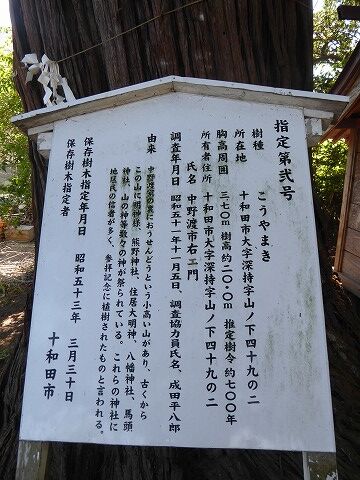 指定第弐号
樹種　こうやまき
所在地　十和田市大字深持字山ノ下四十九の二
胸高周囲　三.七〇m 樹高約二〇.〇m 推定樹令 約七〇〇年
所有者住所　十和田市大字深持字山ノ下四十九の二
氏名　中野渡市右エ門
調査年月日　昭和五十一年十一月五日、調査協力員氏名、成田平八郎
由来　中野渡家の裏におうせんどうという小高い山があり、古くから
この山に明神様、熊野神社、住居大明神、八幡神社、馬頭
神社、山の神等数々の神が祭られている。これらの神社に
地区民の信者が多く、参拝記念に植樹されたものと言われる。
保存樹木指定年月日　昭和五十三年　三月三十日
保存樹木指定者　十和田市